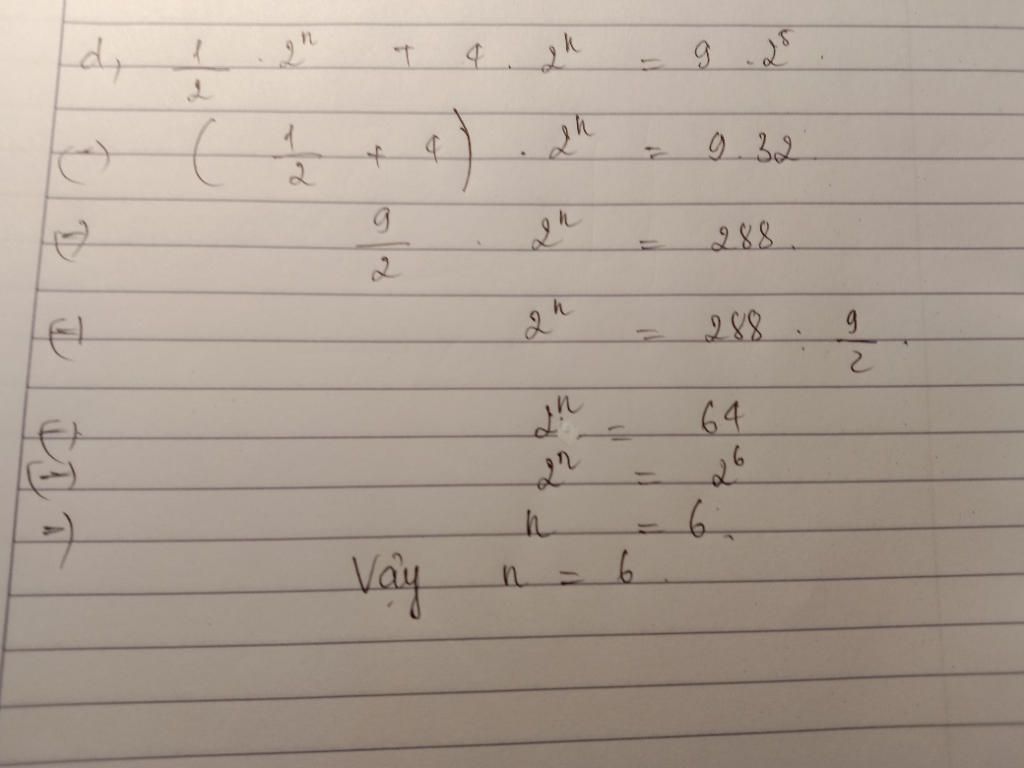 d, 1/2 . 2ⁿ + 4 . 2ⁿ = 9 . 2⁵.
(=) (1/2 + 4) . 2ⁿ = 9.32
(=) 9/2 . 2ⁿ = 288.
(=) 2ⁿ = 288 : 9/2.
(=) 2ⁿ = 64
(=) 2ⁿ = 2⁶
=) n = 6.
Vậy n = 6.